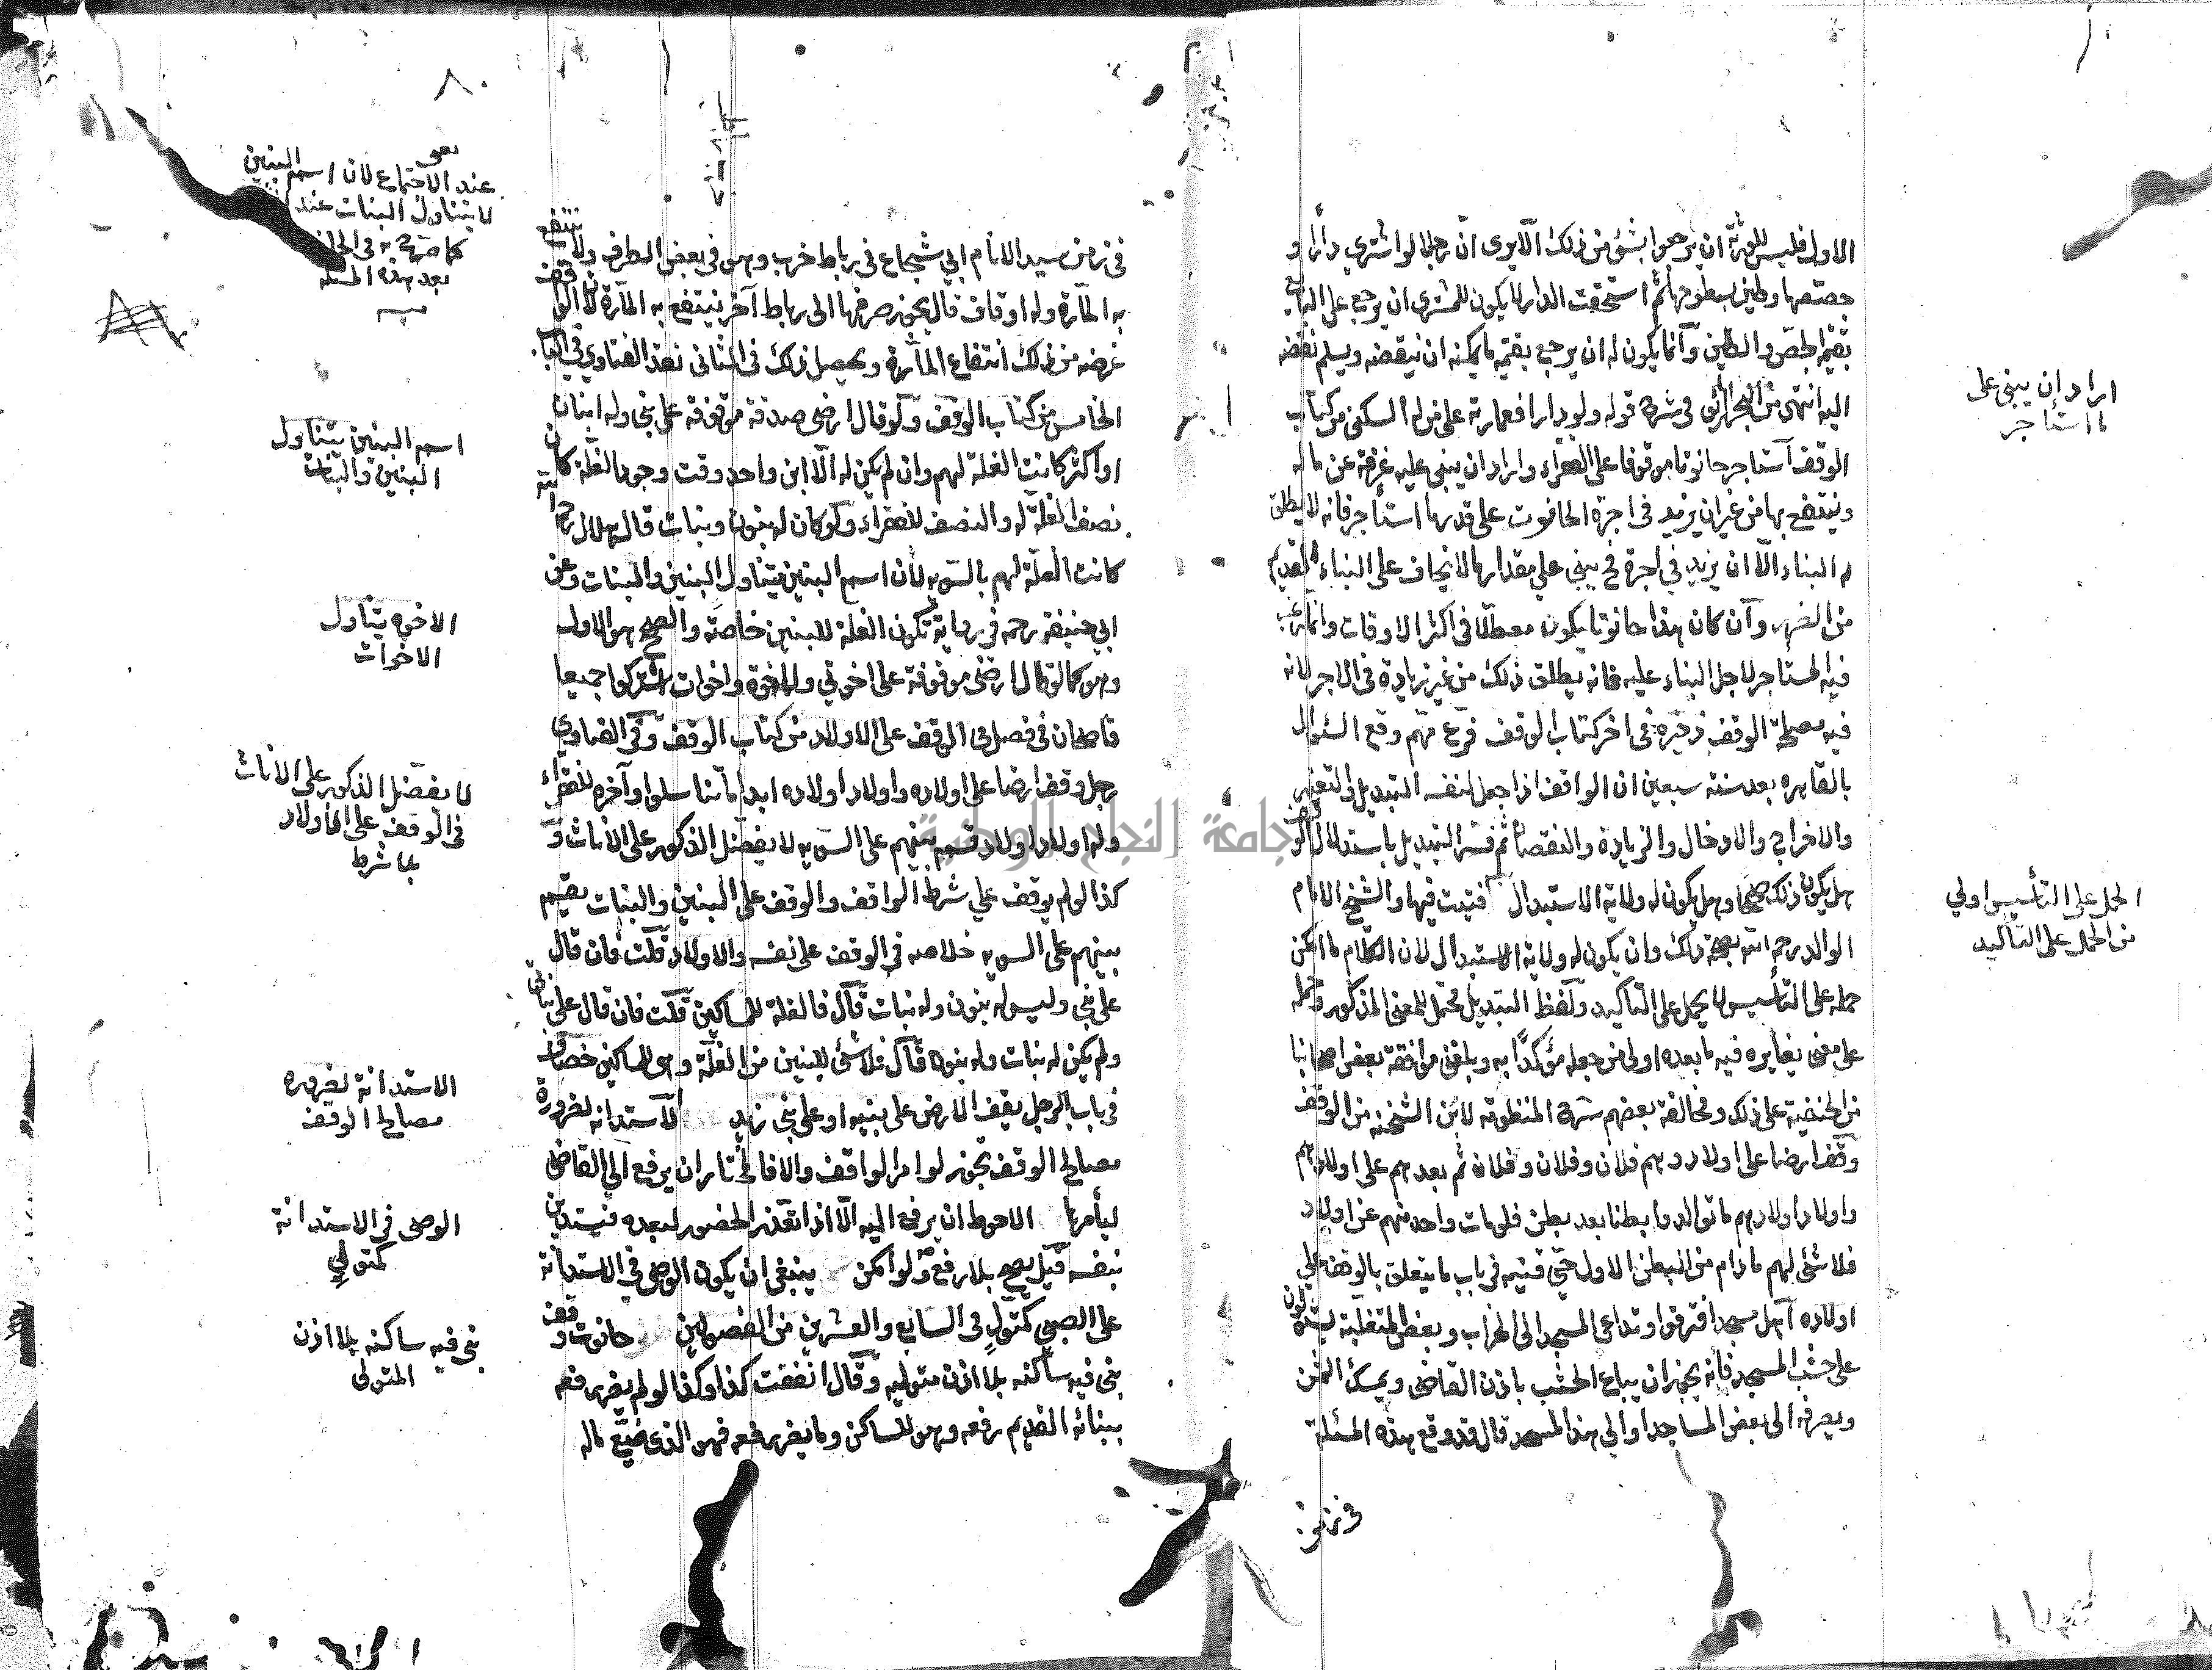 الاول فليس للورثة ان يرجعوا بشئ من ذلك الا يرى ان رجلا لو اشترى دارا و
جصصها وطين سطوحها ثم استحقت الدار لا يكون للمشترى ان يرجع على البايع
بقيمة الجص والطين وانما يكون له ان يرجع بقيمة ما يمكنه ان ينقضه ويسلم نقضه
اليه انتهى من البحر الرائق فى شرح قوله ولو دارا فعمارته على من له السكنى من كتاب
الوقف استاجر حانوتا موقوفا على الفقراء واراد ان يبنى عليه غرفة من ماله
وينتفع بها من غير ان يزيد فى اجرة الحانوت على قدر ما استأجر فانه لا يطلق
له البناء الا ان يزيد فى اجرة فح يبنى على مقدار ما لا يخاف على البناء القديم
من الضرر وان كان هذا حانوتا يكون معطلا فى اكثر الاوقات وانما رغب
فيه المستأجر لاجل البناء عليه فانه يطلق ذلك من غير زيادة فى الاجر لانه
فيه مصلحة الوقف ذخيره فى اخر كتاب الوقف فرع مهم وقع السئوال
بالقاهره بعد سنة سبعين ان الواقف اذا جعل لنفسه التبديل والتغيير
والاخراج والادخال والزيادة والنقصان ثم فسر التبديل باستبدال الوقف
هل يكون ذلك صحيحا وهل يكون له ولاية الاستبدال افتيت فيها والشيخ الامام
الوالد رحمه الله بصحة ذلك وان يكون له ولاية الاستبدال لان الكلام ما امكن
حمله على التأسيس لا يحمل على التأكيد ولفظ التبديل محتمل للمعنى المذكور وحمله
على معنى يغايره فيه ما بعده اولى من جعله مؤكدا به وبلغنى موافقة بعض اصحابنا
من الحنفية على ذلك ومخالفة بعضهم شرح المنظومة لابن الشحنه من الوقف
وقف ارضا على اولاده وهم فلان وفلان وفلان ثم بعدهم على اولادهم
واولاد اولادهم ما توالدوا بطنا بعد بطن فلو مات واحد منهم عن اولاد
فلا شئ لهم ما دام من البطن الاول حى قنيه فى باب ما يتعلق بالوقف على
اولاده اهل مسجد افترقوا وتداعى المسجد الى الخراب وبعض المتغلبة يستولون
على خشب المسجد فانه يجوز ان يباع الخشب باذن القاضى ويمسك الثمن
ويصرفه الى بعض المساجد او الى هذا المسجد قال قد وقع هذه المسئلة
فى زمن
اراد ان يبنى على
ما استأجر
الحمل على التأسيس اولى
من الحمل على التأكيد
فى زمن سيد الامام ابى شجاع فى رباط خرب وهو فى بعض الطرف ولا ينتفع
به المارة وله اوقاف قال يجوز صرفها الى رباط آخر ينتفع به المارة لان الواقف
غرضه من ذلك انتفاع المارة ويحصل ذلك فى الثانى نقد الفتاوى فى الباب
الخامس من كتاب الوقف ولو قال ارضى صدقة موقوفة على بنى وله ابنان
او اكثر كانت الغلة لهم وان لم يكن له الا ابن واحد وقت وجود الغلة كان
نصف الغلة له والنصف للفقراء ولو كان له بنون وبنات قال هلال رحمه الله
كانت الغلة لهم بالسويه لان اسم البنين يتناول البنين والبنات وعن
ابى حنيفة رحمه فى رواية تكون الغلة للبنين خاصة والصحيح هو الاول
وهو كما لو قال ارضى موقوفة على اخوتى وله اخوة واخوات اشتركوا جميعا
قاضيخان فى فصل فى الوقف على الاولاد من كتاب الوقف وفى الفتاوى
رجل وقف ارضا على اولاده واولاد اولاده ابدا ما تناسلوا وآخره للفقراء
وله اولاد اولاد قسم بينهم على السويه لا يفضل الذكور على الاناث و
كذا لو لم يوقف على شرط الواقف والوقف على البنين والبنات يقسم
بينهم على السويه خلاصه فى الوقف على نفسه والاولاد قلت فان قال
على بنى وليس له بنون وله بنات قال فالغلة للمساكين قلت فان قال على بناتى
ولم يكن له بنات وله بنون قال فلا شئ للبنين من الغلة وهى للمساكين خصاف
فى باب الرجل يقف الارض على بنيه او على بنى زيد الاستدانه لضرورة
مصالح الوقف تجوز لو امر الواقف والا فالمختار ان يرفع الى القاضى
ليأمر بها الاحوط ان يرفع اليه الا اذا تعذر الحضور لبعده فيستدين
بنفسه قيل يصح بلا رفع ولو امكن ينبغى ان يكون الوصى فى الاستدانة
على الصبى كمتول فى السابع والعشرين من الفصولين حانوت وقف
بنى فيه ساكنه بلا اذن متوليه وقال انفقت كذا وكذا لو لم يضر رفعه
ببنائه القديم رفعه وهو للساكن وما يضر رفعه فهو الذى ضيع ماله
٨٠
يعنى
عند الاجتماع لان اسم البنين
لا يتناول البنات عند
كما صرح به فى
بعد هذه المسئلة
اسم البنين يتناول
البنين والبنات
الاخوه يتناول
الاخوات
لا يفضل الذكور على الاناث
فى الوقف على الاولاد
بلا شرط
الاستدانة لضرورة
مصالح الوقف
الوصى فى الاستدانة
كمتولي
بنى فيه ساكنه بلا اذن
المتولى
جامعة النجاح الوطنية